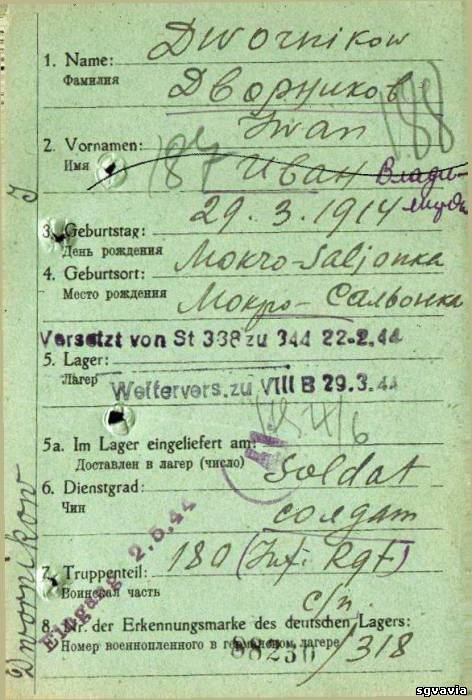 Dwornikow
1. Name:
Фамилия
Дворников
Iwan
188
2. Vornamen:
Имя
187
Иван Влади-
мир
29. 3. 1914
3. Geburtstag:
День рождения
Mokro-Saljonka
4. Geburtsort:
Место рождения
Мокро-Сальонка
Versetzt von St 338 zu 344 22-2.44
5. Lager:
Лагер
Weitervers. zu VIII B 29.3.44
5a. Im Lager eingeliefert am:
Доставлен в лагер (число)
AV
Soldat
6. Dienstgrad:
Чин
солдат
Eingang 2.5.44
180 (Inf. Rgt)
7. Truppenteil:
Воинская часть
с/п.
8. Nr. der Erkennungsmarke des deutschen Lagers:
Номер военнопленного в германском лагере
/318
Dwornikow I
sgvavia